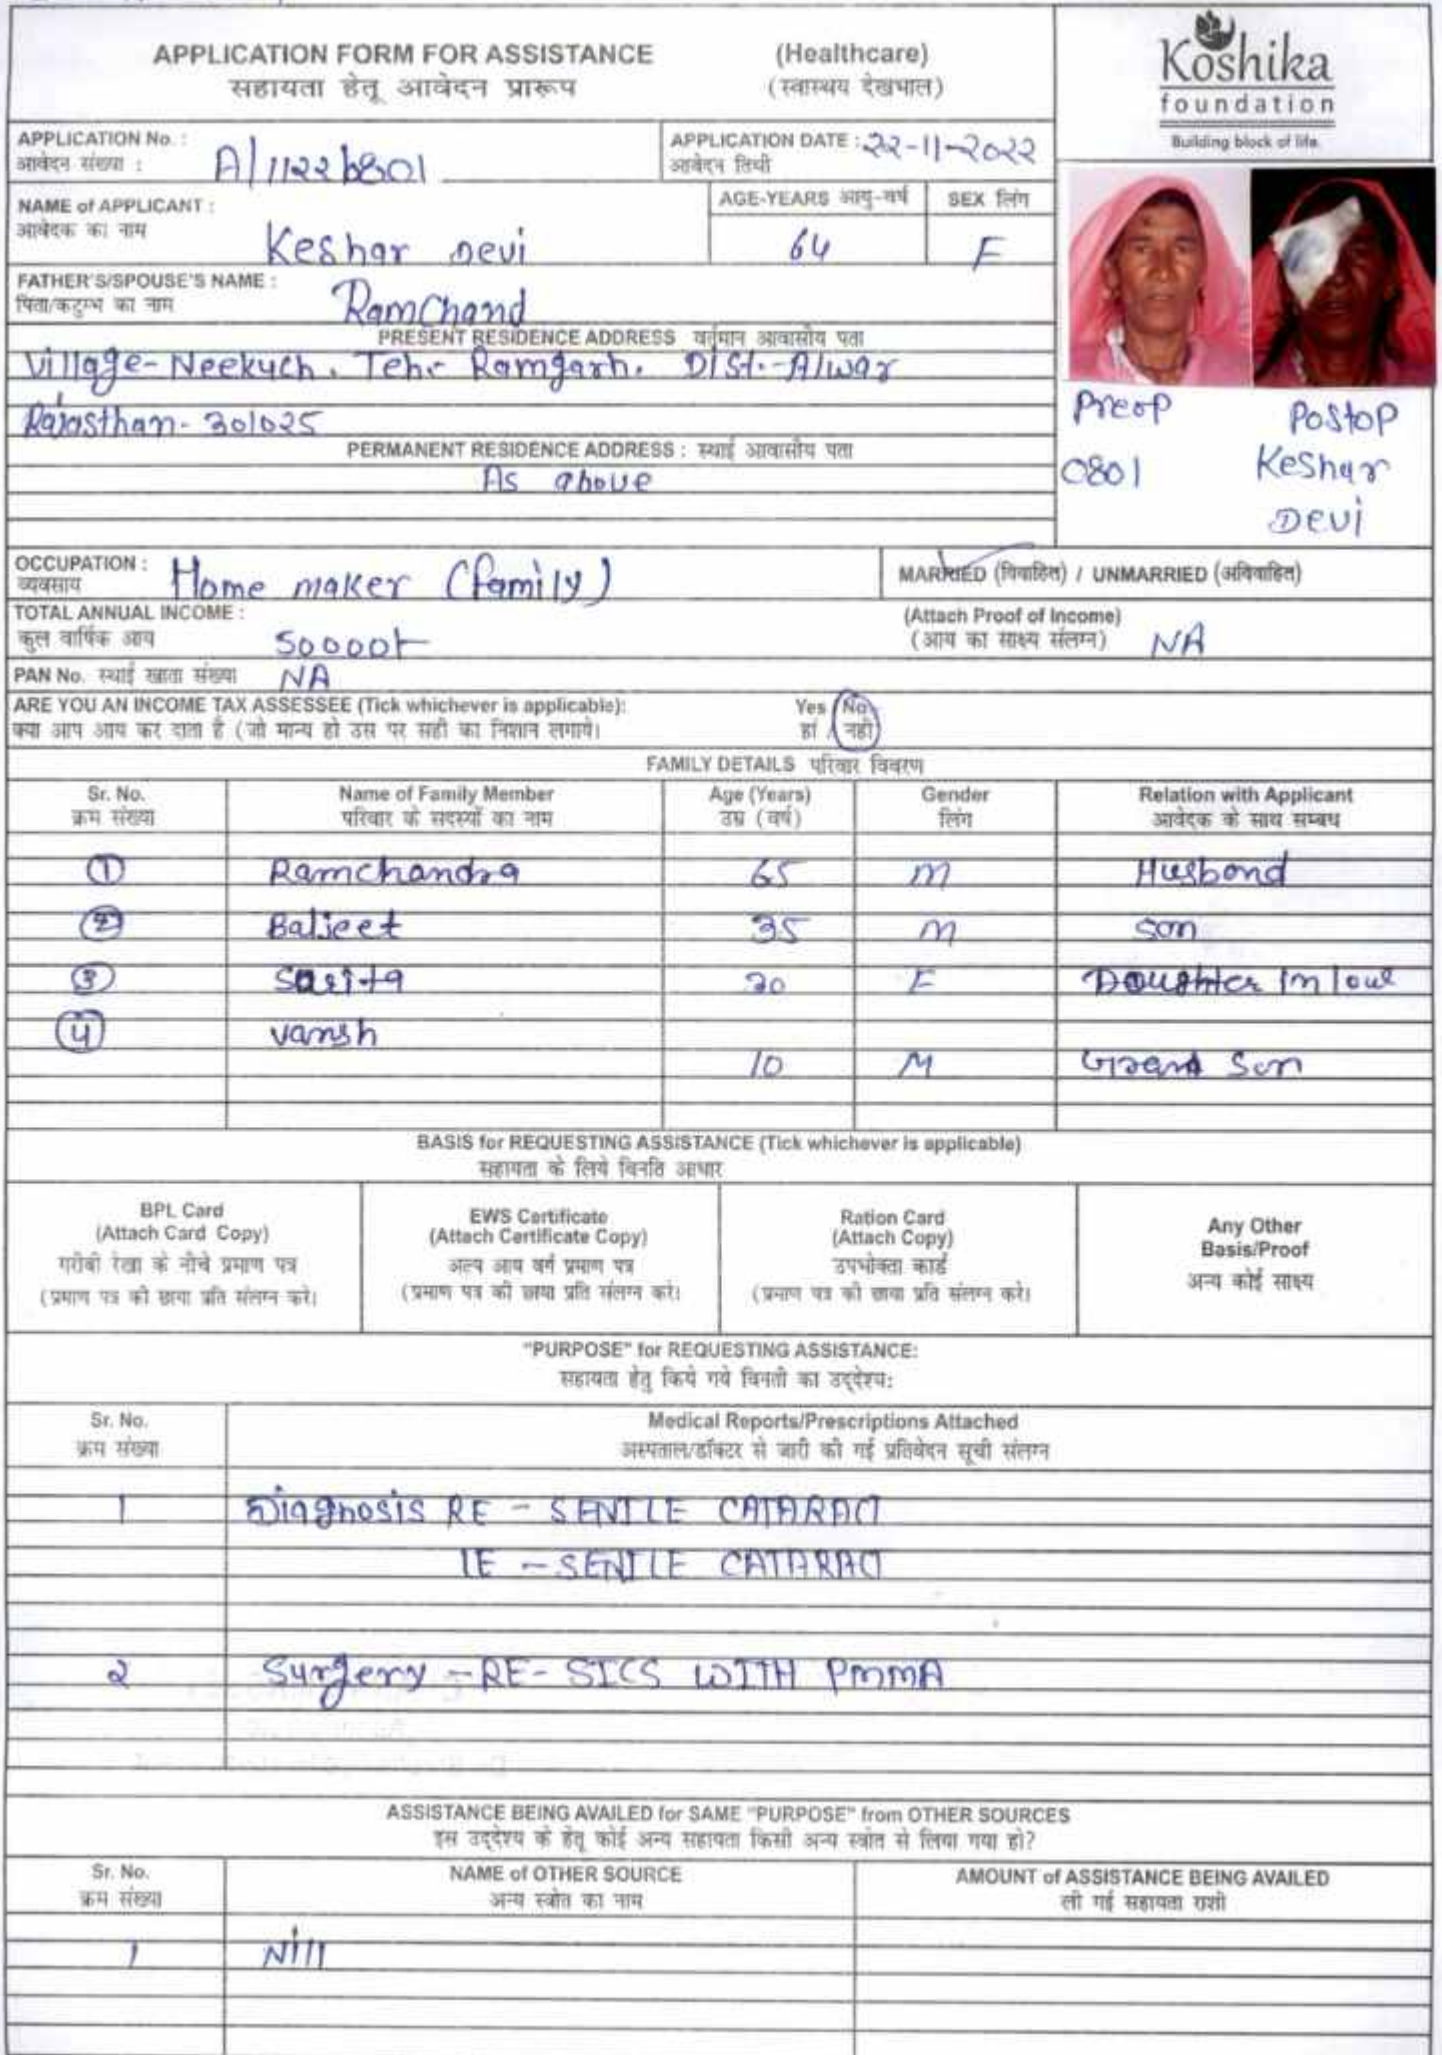 APPLICATION FORM FOR ASSISTANCE (Healthcare)
सहायता हेतू आवेदन प्रारूप (स्वास्थय देखभाल)
Koshika
foundation
Building block of life.
APPLICATION No. :
आवेदन संख्या :
APPLICATION DATE : 22-11-2022
आवेदन तिथी
NAME of APPLICANT :
आवेदक का नाम
Keshar Devi
AGE-YEARS आयु-वर्ष
64
SEX लिंग
F
FATHER'S/SPOUSE'S NAME :
पिता/कटुम्भ का नाम
Ramchand
PRESENT RESIDENCE ADDRESS वर्तमान आवासीय पता
Village-Neekuch. Teh- Ramgarh. Dist.-Alwar
Rajasthan- 301025
PERMANENT RESIDENCE ADDRESS : स्थाई आवासीय पता
As above
Preop
0801
Postop
Keshar
Devi
OCCUPATION :
व्यवसाय
Home maker (family)
MARRIED (विवाहित) / UNMARRIED (अविवाहित)
TOTAL ANNUAL INCOME :
कुल वार्षिक आय
50000/-
(Attach Proof of Income)
(आय का साक्ष्य संलग्न)
NA
PAN No. स्थाई खाता संख्या NA
ARE YOU AN INCOME TAX ASSESSEE (Tick whichever is applicable): Yes / No
क्या आप आय कर दाता है (जो मान्य हो उस पर सही का निशान लगाये। हां / नही
FAMILY DETAILS परिवार विवरण
Sr. No. Name of Family Member Age (Years) Gender Relation with Applicant
क्रम संख्या परिवार के सदस्यों का नाम उम्र (वर्ष) लिंग आवेदक के साथ सम्बध
① Ramchandra 65 M Husbond
② Baljeet 35 M son
③ Sarita 30 F Doughter in low
④ vansh
10 M Grand Son
BASIS for REQUESTING ASSISTANCE (Tick whichever is applicable)
सहायता के लिये विनति आधार
BPL Card
(Attach Card Copy)
गरीबी रेखा के नीचे प्रमाण पत्र
(प्रमाण पत्र की छाया प्रति संलग्न करे।
EWS Certificate
(Attach Certificate Copy)
अल्प आय वर्ग प्रमाण पत्र
(प्रमाण पत्र की छाया प्रति संलग्न करे।
Ration Card
(Attach Copy)
उपभोक्ता कार्ड
(प्रमाण पत्र की छाया प्रति संलग्न करे।
Any Other
Basis/Proof
अन्य कोई साक्ष्य
"PURPOSE" for REQUESTING ASSISTANCE:
सहायता हेतु किये गये विनती का उद्देश्य:
Sr. No. Medical Reports/Prescriptions Attached
क्रम संख्या अस्पताल/डॉक्टर से जारी की गई प्रतिवेदन सूची संलग्न
1 Diagnosis RE - SENILE CATARACT
LE - SENILE CATARACT
2 Surgery - RE- SICS WITH PMMA
ASSISTANCE BEING AVAILED for SAME "PURPOSE" from OTHER SOURCES
इस उद्देश्य के हेतू कोई अन्य सहायता किसी अन्य स्त्रोत से लिया गया हो?
Sr. No. NAME of OTHER SOURCE AMOUNT of ASSISTANCE BEING AVAILED
क्रम संख्या अन्य स्त्रोत का नाम ली गई सहायता राशी
1 Nill